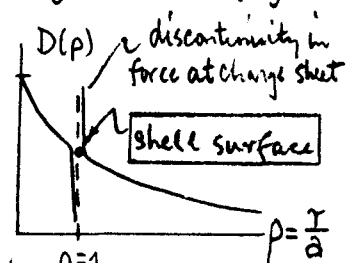 D(ρ)
discontinuity in
force at charge sheet
shell surface
ρ = r/a
ρ=1